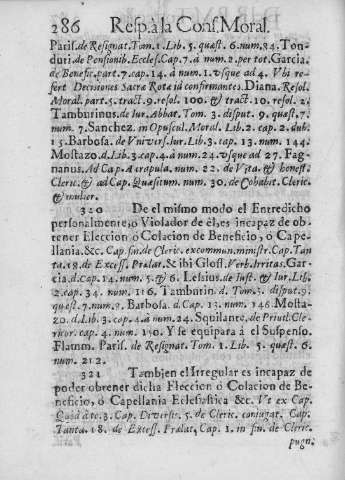 286 Resp. à la Cons. Moral.
Paris. de Resignat. Tom. 1. Lib. 5. quæst. 6. num. 84. Ton-
duri. de Pensionib. Eccles. Cap. 7. à num 2. per tot. Garcia.
de Benefic. part. 7. cap. 14. à num. 1. vsque ad 4. Vbi re-
fert Decisiones Sacræ Rotæ id confirmantes. Diana. Resol.
Moral. part. 5. tract. 9. resol. 100. & tract. 10. resol. 2.
Tamburinus. de Iur. Abbat. Tom. 3. disput. 9. quæst. 7.
num. 7. Sanchez. in Opuscul. Moral. Lib. 2. cap. 2. dub.
15. Barbosa. de Vnivers. Iur. Lib. 3. cap. 13. num. 144.
Mostazo. d. Lib. 3. cap. 4. à num. 24. vsque ad 27. Fag-
nanus. Ad Cap. A crapula. num. 22. de Vita. & honest.
Cleric. & ad Cap. Quæsitum. num. 30. de Cohabit. Cleric.
& mulier.
320 De el mismo modo el Entredicho
personalmente, o Violador de el, es incapaz de ob-
tener Eleccion ò Colacion de Beneficio, ò Cape-
llania. &c. Cap. fin. de Cleric. excommun. ministr. Cap. Tan-
ta. 18. de Excess. Prælat. & ibi Gloss. Verb. Irritas. Gar-
cia. d. cap. 14. num. 5. & 6. Lesius. de Iust. & Iur. Lib.
2. cap. 34. num. 116. Tamburin. d. Tom. 3. disput. 9.
quæst. 7. num. 3. Barbosa. d. Cap. 13. num. 146. Mosta-
zo. d. Lib. 3. cap. 4. à num. 24. Squilante. de Privil. Cle-
ricor. cap. 4. num. 150. Y se equipara à el Suspenso.
Flamm. Paris. de Resignat. Tom. 1. Lib. 5. quæst. 6.
num. 212.
321 Tambien el Irregular es incapaz de
poder obtener dicha Eleccion ò Colacion de Be-
neficio, ò Capellania Eclesiastica &c. Vt ex Cap.
3. Cap. Diversis. 5. de Cleric. coniugat. Cap.
Tanta. 18. de Excess. Prælat, Cap. 1. in fin. de Cleric.
pugn.